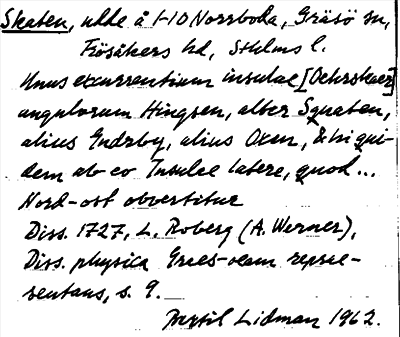 Skaten, udde å 1-10 Norrboda, Gräsö sn,
Frösåkers hd, Sthlms l.
Unus excurrentium insulae [Ochrskaer]
angulorum Hingsen, alter Sqvaten,
alius Endrby, alius Oxen, & hi qui-
dem ab eo Insulae latere, quod ...
Nord-ost obvertitur
Diss. 1727, L. Roberg (A. Werner),
Diss. physica Graes-oeam reprae-
sentans, s. 9.
Bertil Lidman 1962.